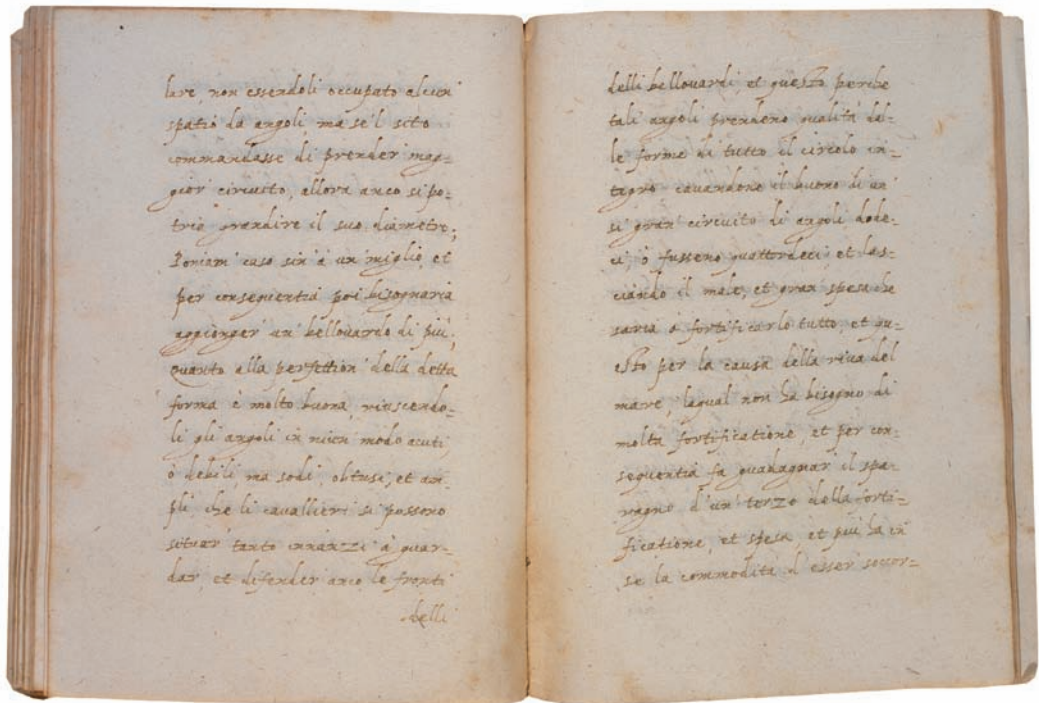 lare, non essendoli occupato alcun
spatio da angoli, ma se'l sito
commandasse di prender mag=
gior circuito, allora anco si po=
tria grandire il suo diametro;
Poniam' caso sin' à un miglio, et
per consequentia poi bisognaria
aggionger' un bellouardo di più,
Quanto alla perfettion' della detta
forma è molto buona, riuscendo=
li gli angoli in niun modo acuti,
ò debili ma sodi, obtusi, et am=
pli, che li cauallieri si possono
situar' tanto innanzi à guar=
dar, et difender anco le fronti
delli
delli bellouardi, et questo perche
tali angoli prendeno qualità dal=
le forme di tutto il circolo in=
tegro cauandone il buono di un'
si gran' circuito di angoli dode=
ci, ò fusseno quattordeci, et las=
ciando il male, et gran' spesa che
saria a fortificarlo tutto, et qu=
esto per la causa della riua del
mare, laqual non ha bisogno di
molta fortificatione, et per con=
sequentia fa guadagnar' il spa=
ragno d'un' terzo della forti=
ficatione, et spesa, et più ha in
se la commodità d'esser soccor=